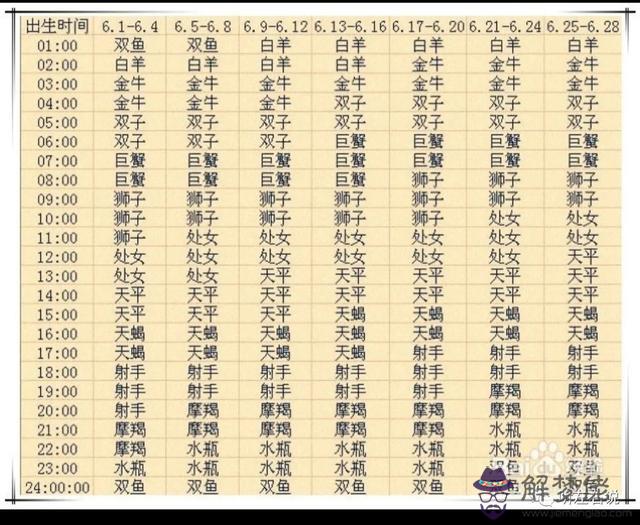 出生时间 6.1-6.4 6.5-6.8 6.9-6.12 6.13-6.16 6.17-6.20 6.21-6.24 6.25-6.28
01:00 双鱼 双鱼 白羊 白羊 白羊 白羊 白羊
02:00 白羊 白羊 白羊 白羊 金牛 金牛 金牛
03:00 金牛 金牛 金牛 金牛 金牛 金牛 金牛
04:00 金牛 金牛 金牛 双子 双子 双子 双子
05:00 双子 双子 双子 双子 双子 双子 双子
06:00 双子 双子 双子 巨蟹 巨蟹 巨蟹 巨蟹
07:00 巨蟹 巨蟹 巨蟹 巨蟹 巨蟹 巨蟹 巨蟹
08:00 巨蟹 巨蟹 巨蟹 巨蟹 狮子 狮子 狮子
09:00 狮子 狮子 狮子 狮子 狮子 狮子 狮子
10:00 狮子 狮子 狮子 狮子 狮子 处女 处女
11:00 狮子 处女 处女 处女 处女 处女 处女
12:00 处女 处女 处女 处女 处女 处女 天平
13:00 处女 处女 天平 天平 天平 天平 天平
14:00 天平 天平 天平 天平 天平 天平 天平
15:00 天平 天平 天平 天蝎 天蝎 天蝎 天蝎
16:00 天蝎 天蝎 天蝎 天蝎 天蝎 天蝎 天蝎
17:00 天蝎 天蝎 天蝎 天蝎 射手 射手 射手
18:00 射手 射手 射手 射手 射手 射手 射手
19:00 射手 射手 射手 射手 射手 摩羯 摩羯
20:00 射手 摩羯 摩羯 摩羯 摩羯 摩羯 摩羯
21:00 摩羯 摩羯 摩羯 摩羯 摩羯 水瓶 水瓶
22:00 摩羯 水瓶 水瓶 水瓶 水瓶 水瓶 水瓶
23:00 水瓶 水瓶 水瓶 水瓶 水瓶
24:00:00 双鱼 双鱼 双鱼 双鱼 双鱼
解梦佬
www.jiemengiao.com